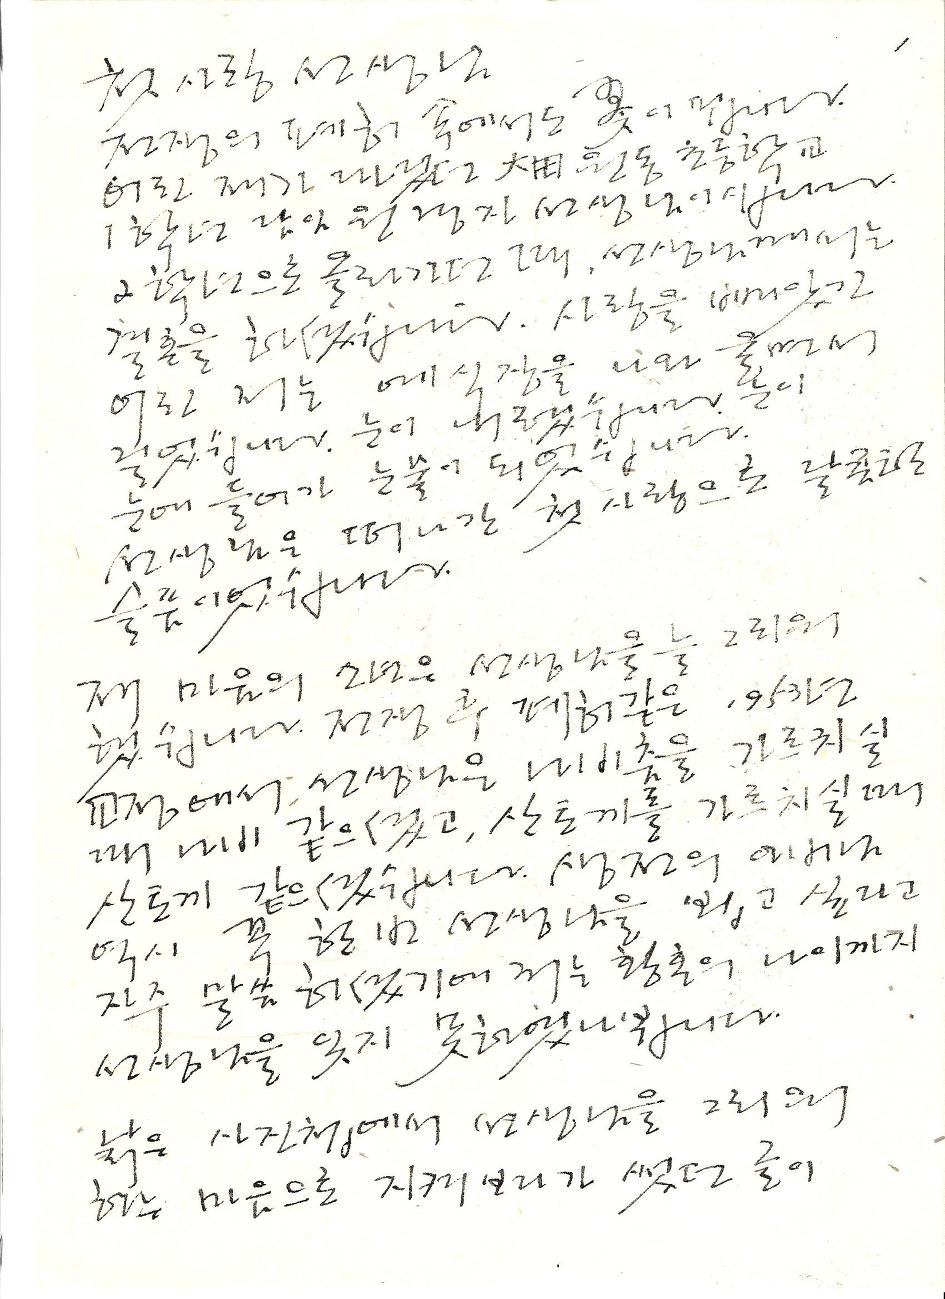 첫사랑 선생님
전쟁의 폐허 속에서도 꽃이 핍니다.
어린 제가 다녔던 大田 원동 초등학교
1학년 담임 원정자 선생님이십니다.
2학년으로 올라가던 그때, 선생님께서는
결혼을 하셨습니다. 사랑을 빼앗긴
어린 저는 예식장을 나와 울면서
걸었습니다. 눈이 내렸습니다. 눈이
눈에 들어가 눈물이 되었습니다.
선생님은 떠나간 첫사랑으로 달콤한
슬픔이었습니다.
제 마음의 소년은 선생님을 늘 그리워
했습니다. 전쟁 후 폐허같은 1953년
교정에서 선생님은 나비춤을 가르치실
때 나비 같으셨고, 산토끼를 가르치실 때
산토끼 같으셨습니다. 생전의 어머님
역시 꼭 한번 선생님을 뵙고 싶다고
자주 말씀하셨기에 저는 황혼의 나이까지
선생님을 잊지 못하였나봅니다.
낡은 사진첩에서 선생님을 그리워
하는 마음으로 지켜보다가 썼던 글이